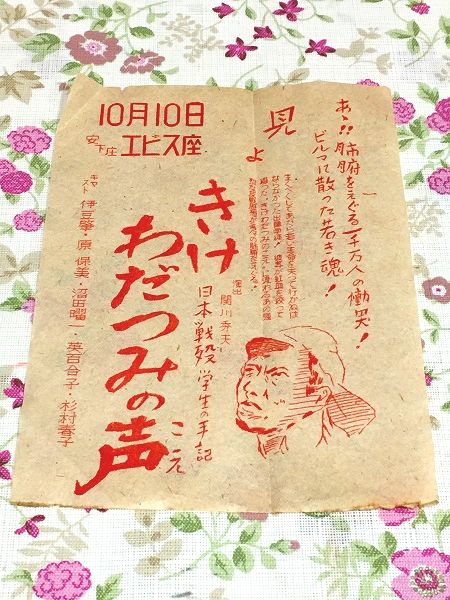 10月10日
安下庄 エビス座
あゝ!! 肺腑をえぐる一千万人の慟哭!
ビルマに散った若き魂!
見よ
ならなかった出陣学徒!
演出 関川秀夫
日本戦歿学生の手記
きけ
わだつみの声
こえ
キャスト 伊豆肇・原保美・沼田曜一・英百合子・杉村春子